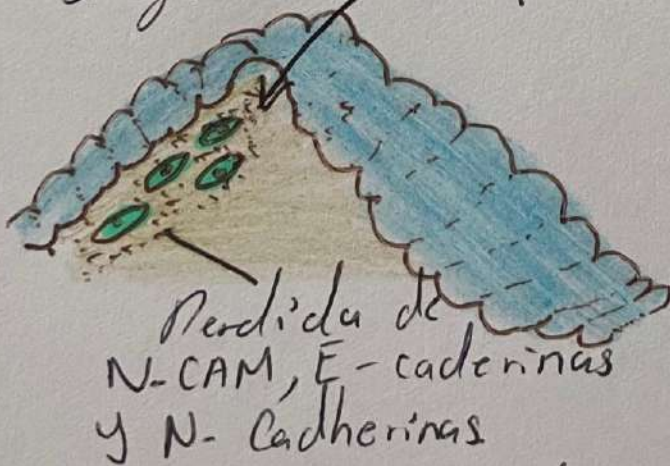 Perdida de
N-CAM, E-caderinas
y N- Cadherinas